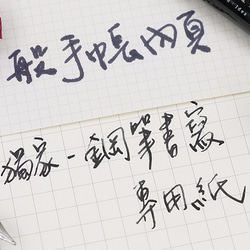 般手帳內頁
獨家-鋼筆書寫
專用紙